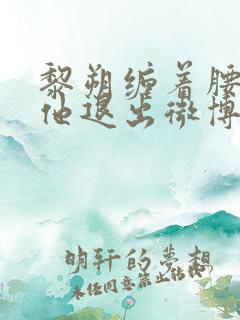 黎朔缠着腰
他退出微博
明轩的梦想
未经同意禁止转载